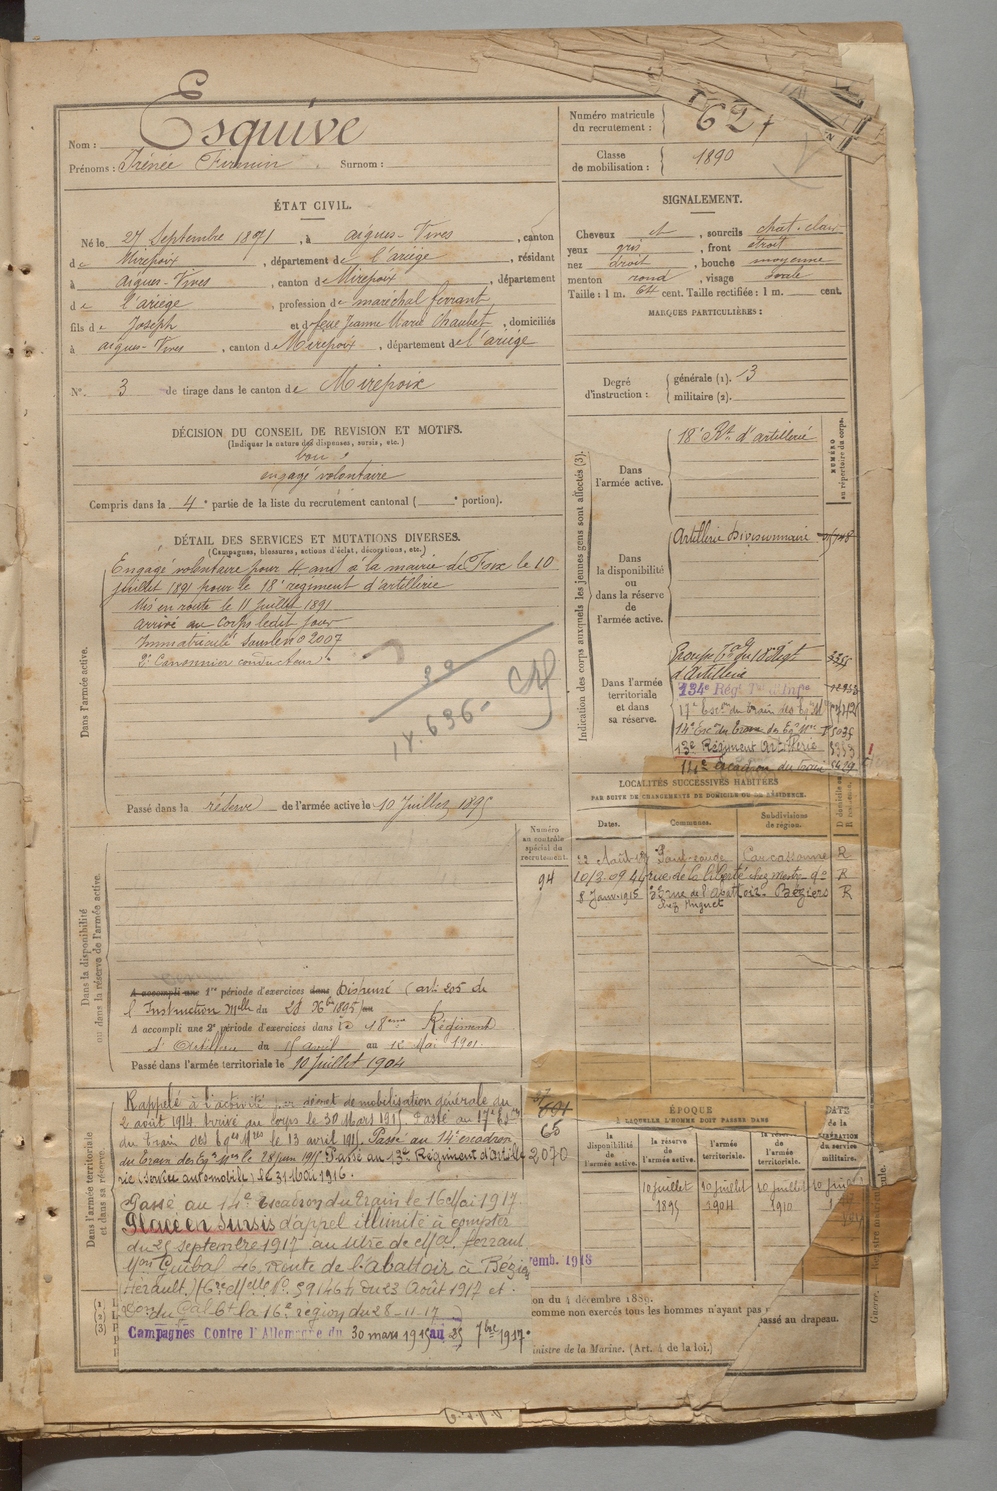 Nom : Esquive
Prénoms : Irénée Firmin Surnom :
Numéro matricule du recrutement : 627
Classe de mobilisation : 1890
ÉTAT CIVIL.
Né le 27 Septembre 1871, à Aigues-Vives, canton
de Mirepoix, département de l'ariège, résidant
à aigues-Vives, canton de Mirepoix, département
de l'ariège, profession de maréchal ferrant
fils de Joseph et de feue Jeanne Marie Chaubet, domiciliés
à aigues-Vives, canton de Mirepoix, département de l'ariège
N° 3 de tirage dans le canton de Mirepoix
SIGNALEMENT.
Cheveux et, sourcils chat. clair
yeux gris, front étroit
nez droit, bouche moyenne
menton rond, visage ovale
Taille : 1 m. 64 cent. Taille rectifiée : 1 m. cent.
MARQUES PARTICULIÈRES :
Degré d'instruction : générale (1). 3
militaire (2).
DÉCISION DU CONSEIL DE REVISION ET MOTIFS.
(Indiquer la nature des dispenses, sursis, etc.)
bon
engagé volontaire
Compris dans la 4e partie de la liste du recrutement cantonal ( e portion).
DÉTAIL DES SERVICES ET MUTATIONS DIVERSES.
(Campagnes, blessures, actions d'éclat, décorations, etc.)
Dans l'armée active.
Engagé volontaire pour 4 ans à la mairie de Foix le 10
juillet 1891 pour le 18e régiment d'artillerie
Mis en route le 11 Juillet 1891
arrivé au Corps ledit jour
Immatriculé sous le n° 2007
2e Canonnier conducteur
Passé dans la réserve de l'armée active le 10 Juillet 1895
Indication des corps auxquels les jeunes gens sont affectés (3).
NUMÉRO au répertoire du corps.
Dans l'armée active.
18e Rt d'artillerie
Dans la disponibilité ou dans la réserve de l'armée active.
Artillerie Divisionnaire
Dans l'armée territoriale et dans sa réserve.
Groupe Tal du 18e Régt
d'Artillerie 3355
134e Régt Tal d'Infie
17e Escon du Train des Eq. M
14e Escon du train des Eqes Mres 5035
13e Régiment Artillerie 3353
14e Escadron du Train
LOCALITÉS SUCCESSIVES HABITÉES
PAR SUITE DE CHANGEMENTS DE DOMICILE OU DE RÉSIDENCE.
Dates. Communes. Subdivisions de région.
Carcassonne R
10/3.09 44 rue de la liberté R
8 Janv. 1915 32 rue de l'abattoir Béziers R
chez Miquet
Numéro au contrôle spécial du recrutement.
94
Dans la disponibilité ou dans la réserve de l'armée active.
A accompli une 1re période d'exercices dans Dispensé (art. 205 de
l'Instruction Mlle du 28 Xbre 1895) au
A accompli une 2e période d'exercices dans le 18ème Régiment
d'Artillerie du 15 avril au 12 Mai 1901
Passé dans l'armée territoriale le 10 Juillet 1904
Dans l'armée territoriale et dans sa réserve.
Rappelé à l'activité par décret de mobilisation générale du
2 août 1914. Arrivé au corps le 30 Mars 1915. Passé au 17e Escon
du Train des Eqges Mres le 13 avril 1915. Passé au 14e escadron
du Train des Eqes Mres le 28 juin 1915 Passé au 13e Régiment d'Artille
rie (Service automobile) le 31 Mai 1916.
Passé au 14e Escadron du Train le 16 Mai 1917
Placé en Sursis d'appel illimité à compter
du 25 septembre 1917 au titre de Mal ferrant
Mon Guibal 46, Route de l'Abattoir à Béziers
(Hérault.) N° 59146 du 23 Août 1917 et
du Gal Ct la 16e région du 28-11-17
Campagnes Contre l'Allemagne du 30 mars 1915 au 25 7bre 1917.
60
2070
ÉPOQUE
À LAQUELLE L'HOMME DOIT PASSER DANS
DATE de la LIBÉRATION du service militaire.
la disponibilité de l'armée active.
la réserve de l'armée active.
l'armée territoriale.
la réserve de l'armée territoriale.
10 juillet 1895
10 juillet 1904
10 juillet 1910
10 juillet
remb. 1918
on du 4 décembre 1889.
comme non exercés tous les hommes n'ayant pas
passé au drapeau.
inistre de la Marine. (Art. 4 de la loi.)